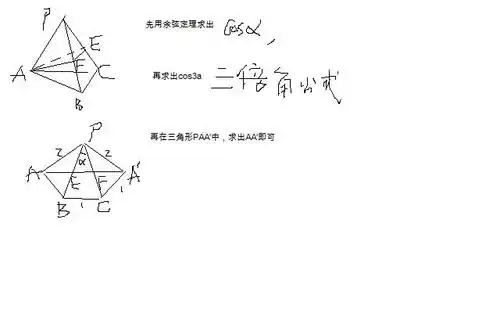 P
先用余弦定理求出 cosα,
E
A
F
C
再求出cos3a 三倍角公式
B
P
再在三角形PAA'中，求出AA'即可
2 α 2
A E F A'
B 1 C 1